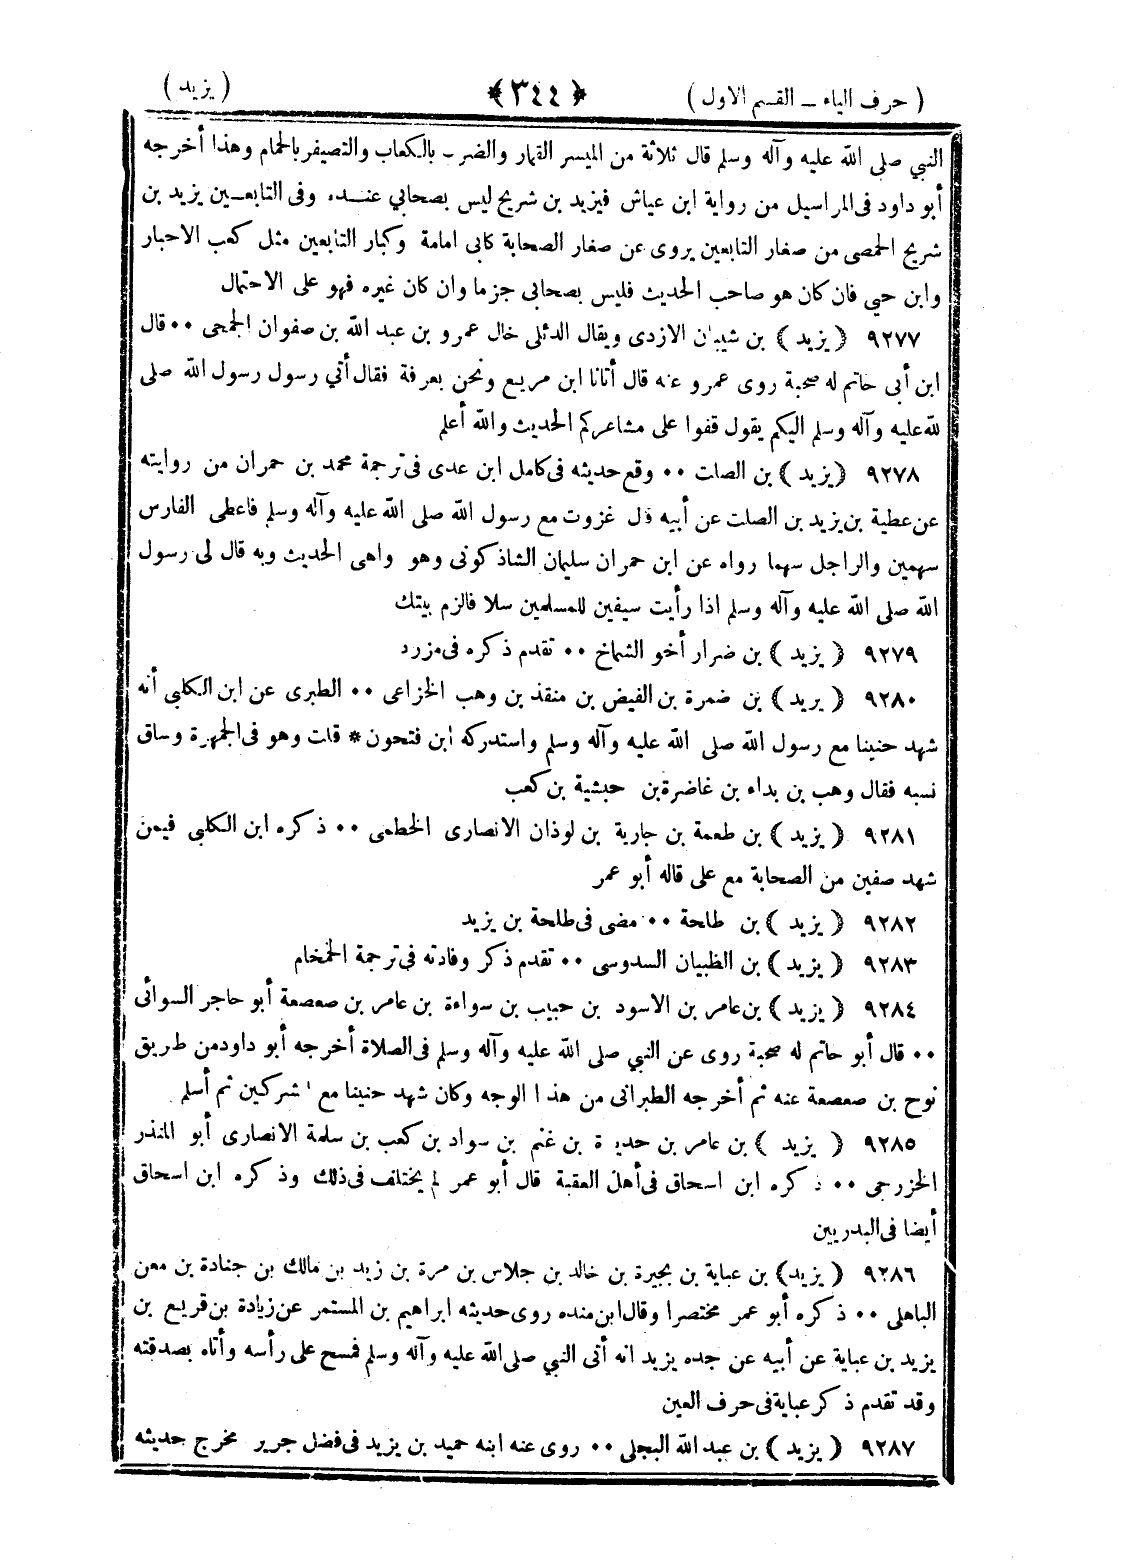 ( حرف الياء ــ القسم الاول ) ﴿٣٤٤﴾ ( يزيد )
النبي صلى الله عليه وآله وسلم قال ثلاثة من الميسر القمار والضرب بالكعاب والتصيفر بالحمام وهذا أخرجه
أبو داود فى المراسيل من رواية ابن عياش فيزيد بن شريح ليس بصحابي عنده وفى التابعين يزيد بن
شريح الحمصى من صغار التابعين يروى عن صغار الصحابة كابى امامة وكبار التابعين مثل كعب الاحبار
وابن حي فان كان هو صاحب الحديث فليس بصحابى جزما وان كان غيره فهو على الاحتمال
٩٢٧٧ ﴿ يزيد ﴾ بن شيبان الازدى ويقال الدئلى خال عمرو بن عبد الله بن صفوان الجمحى ٠٠ قال
ابن أبى حاتم له صحبة روى عمرو عنه قال أتانا ابن مربع ونحن بعرفة فقال أتي رسول رسول الله صلى
لله عليه وآله وسلم اليكم يقول قفوا على مشاعركم الحديث والله أعلم
٩٢٧٨ ﴿ يزيد ﴾ بن الصلت ٠٠ وقع حديثه فى كامل ابن عدى فى ترجمة محمد بن حمران من روايته
عن عطية بن يزيد بن الصلت عن أبيه قال غزوت مع رسول الله صلى الله عليه وآله وسلم فاعطى الفارس
سهمين والراجل سهما رواه عن ابن حمران سليمان الشاذكونى وهو واهى الحديث وبه قال لى رسول
الله صلى الله عليه وآله وسلم اذا رأيت سيفين للمسلمين سلا فالزم بيتك
٩٢٧٩ ﴿ يزيد ﴾ بن ضرار أخو الشماخ ٠٠ تقدم ذكره فى مزرد
٩٢٨٠ ﴿ يريد ﴾ بن ضمرة بن الفيض بن منقذ بن وهب الخزاعى ٠٠ الطبرى عن ابن الكلبي أنه
شهد حنينا مع رسول الله صلى الله عليه وآله وسلم واستدركه ابن فتحون * قلت وهو فى الجمهرة وساق
نسبه فقال وهب بن بداء بن غاضرة بن حبشية بن كعب
٩٢٨١ ﴿ يزيد ﴾ بن طعمة بن جارية بن لوذان الانصارى الخطمى ٠٠ ذكره ابن الكلبي فيمن
شهد صفين من الصحابة مع على قاله أبو عمر
٩٢٨٢ ﴿ يزيد ﴾ بن طلحة ٠٠ مضى فى طلحة بن يزيد
٩٢٨٣ ﴿ يزيد ﴾ بن الظبيان السدوسى ٠٠ تقدم ذكر وفادته فى ترجمة الخمخام
٩٢٨٤ ﴿ يزيد ﴾ بن عامر بن الاسود بن حبيب بن سواءة بن عامر بن صعصعة أبو حاجر السوائى
٠٠ قال أبو حاتم له صحبة روى عن النبي صلى الله عليه وآله وسلم فى الصلاة أخرجه أبو داود من طريق
نوح بن صعصعة عنه ثم أخرجه الطبرانى من هذا الوجه وكان شهد حنينا مع المشركين ثم أسلم
٩٢٨٥ ﴿ يزيد ﴾ بن عامر بن حديدة بن غنم بن سواد بن كعب بن سلمة الانصارى أبو المنذر
الخزرجى ٠٠ ذكره ابن اسحاق فى أهل العقبة قال أبو عمر لم يختلف فى ذلك وذكره ابن اسحاق
أيضا فى البدريين
٩٢٨٦ ﴿ يزيد ﴾ بن عباية بن بجيرة بن خالد بن جلاس بن مرة بن زيد بن مالك بن جنادة بن معن
الباهلى ٠٠ ذكره أبو عمر مختصرا وقال ابن منده روى حديثه ابراهيم بن المستمر عن زيادة بن قريع بن
يزيد بن عباية عن أبيه عن جده يزيد انه أتى النبي صلى الله عليه وآله وسلم فمسح على رأسه وأتاه بصدقته
وقد تقدم ذكر عباية فى حرف العين
٩٢٨٧ ﴿ يزيد ﴾ بن عبد الله البجلى ٠٠ روى عنه ابنه حميد بن يزيد فى فضل جرير مخرج حديثه